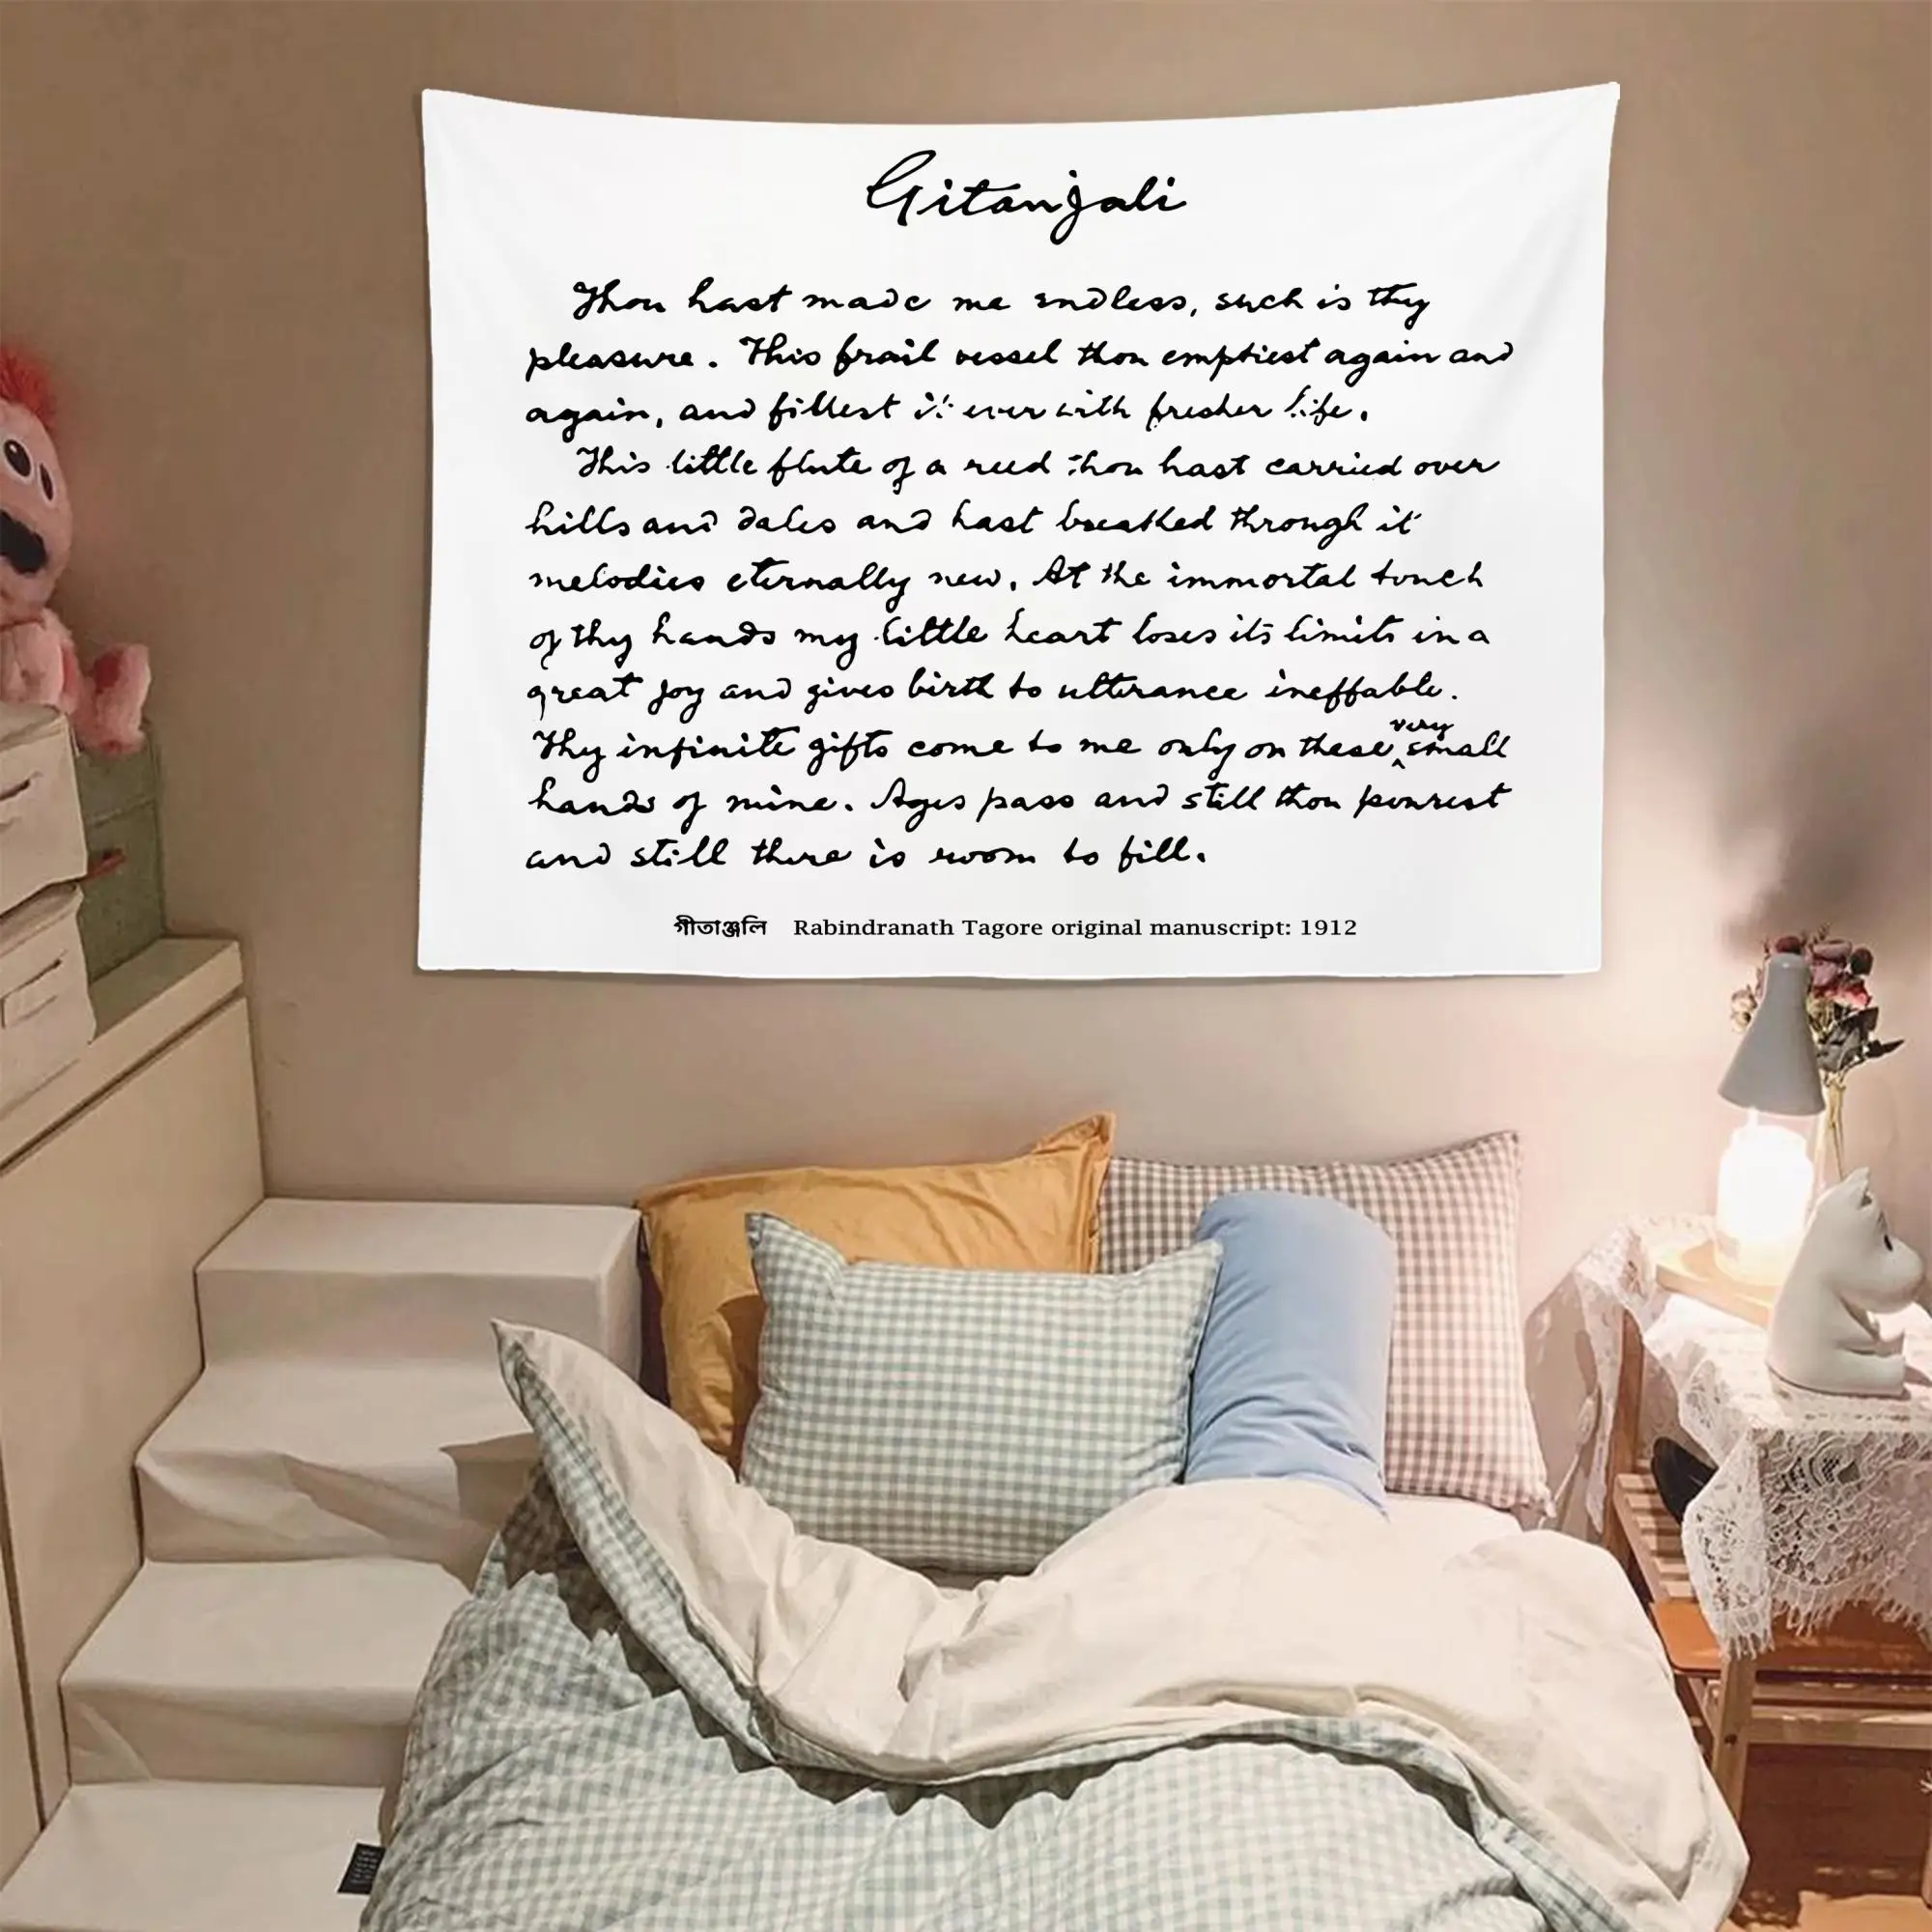 Gitanjali
Thou hast made me endless, such is thy
pleasure. This frail vessel thou emptiest again and
again, and fillest it ever with fresher life.
This little flute of a reed thou hast carried over
hills and dales and hast breathed through it
melodies eternally new. At the immortal touch
of thy hands my little heart loses its limits in a
great joy and gives birth to utterance ineffable.
very
Thy infinite gifts come to me only on these ‸ small
hands of mine. Ages pass and still thou pourest
and still there is room to fill.
গীতাঞ্জলি Rabindranath Tagore original manuscript: 1912